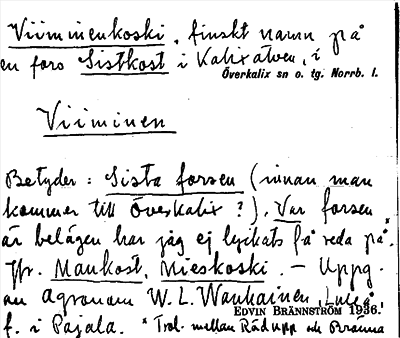 Viiminenkoski, finskt namn på
en fors Sistkost i Kalixälven, i
Överkalix sn o. tg. Norrb. l.
Viiminen
Betyder: Sista forsen (innan man
kommer till Överkalix?). Var forsen
är belägen har jag ej lyckats få reda på.ˣ
Jfr. Mankost, Mieskoski. – Uppg.
av agronom W. L. Wanhainen, Luleå,
EDVIN BRÄNNSTRÖM 1936.
f. i Pajala. ˣ Trol. mellan Rödupp och Brännа